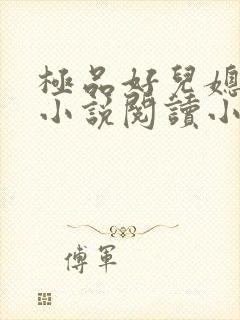 極品好兒媳
小說閱讀小
傅軍